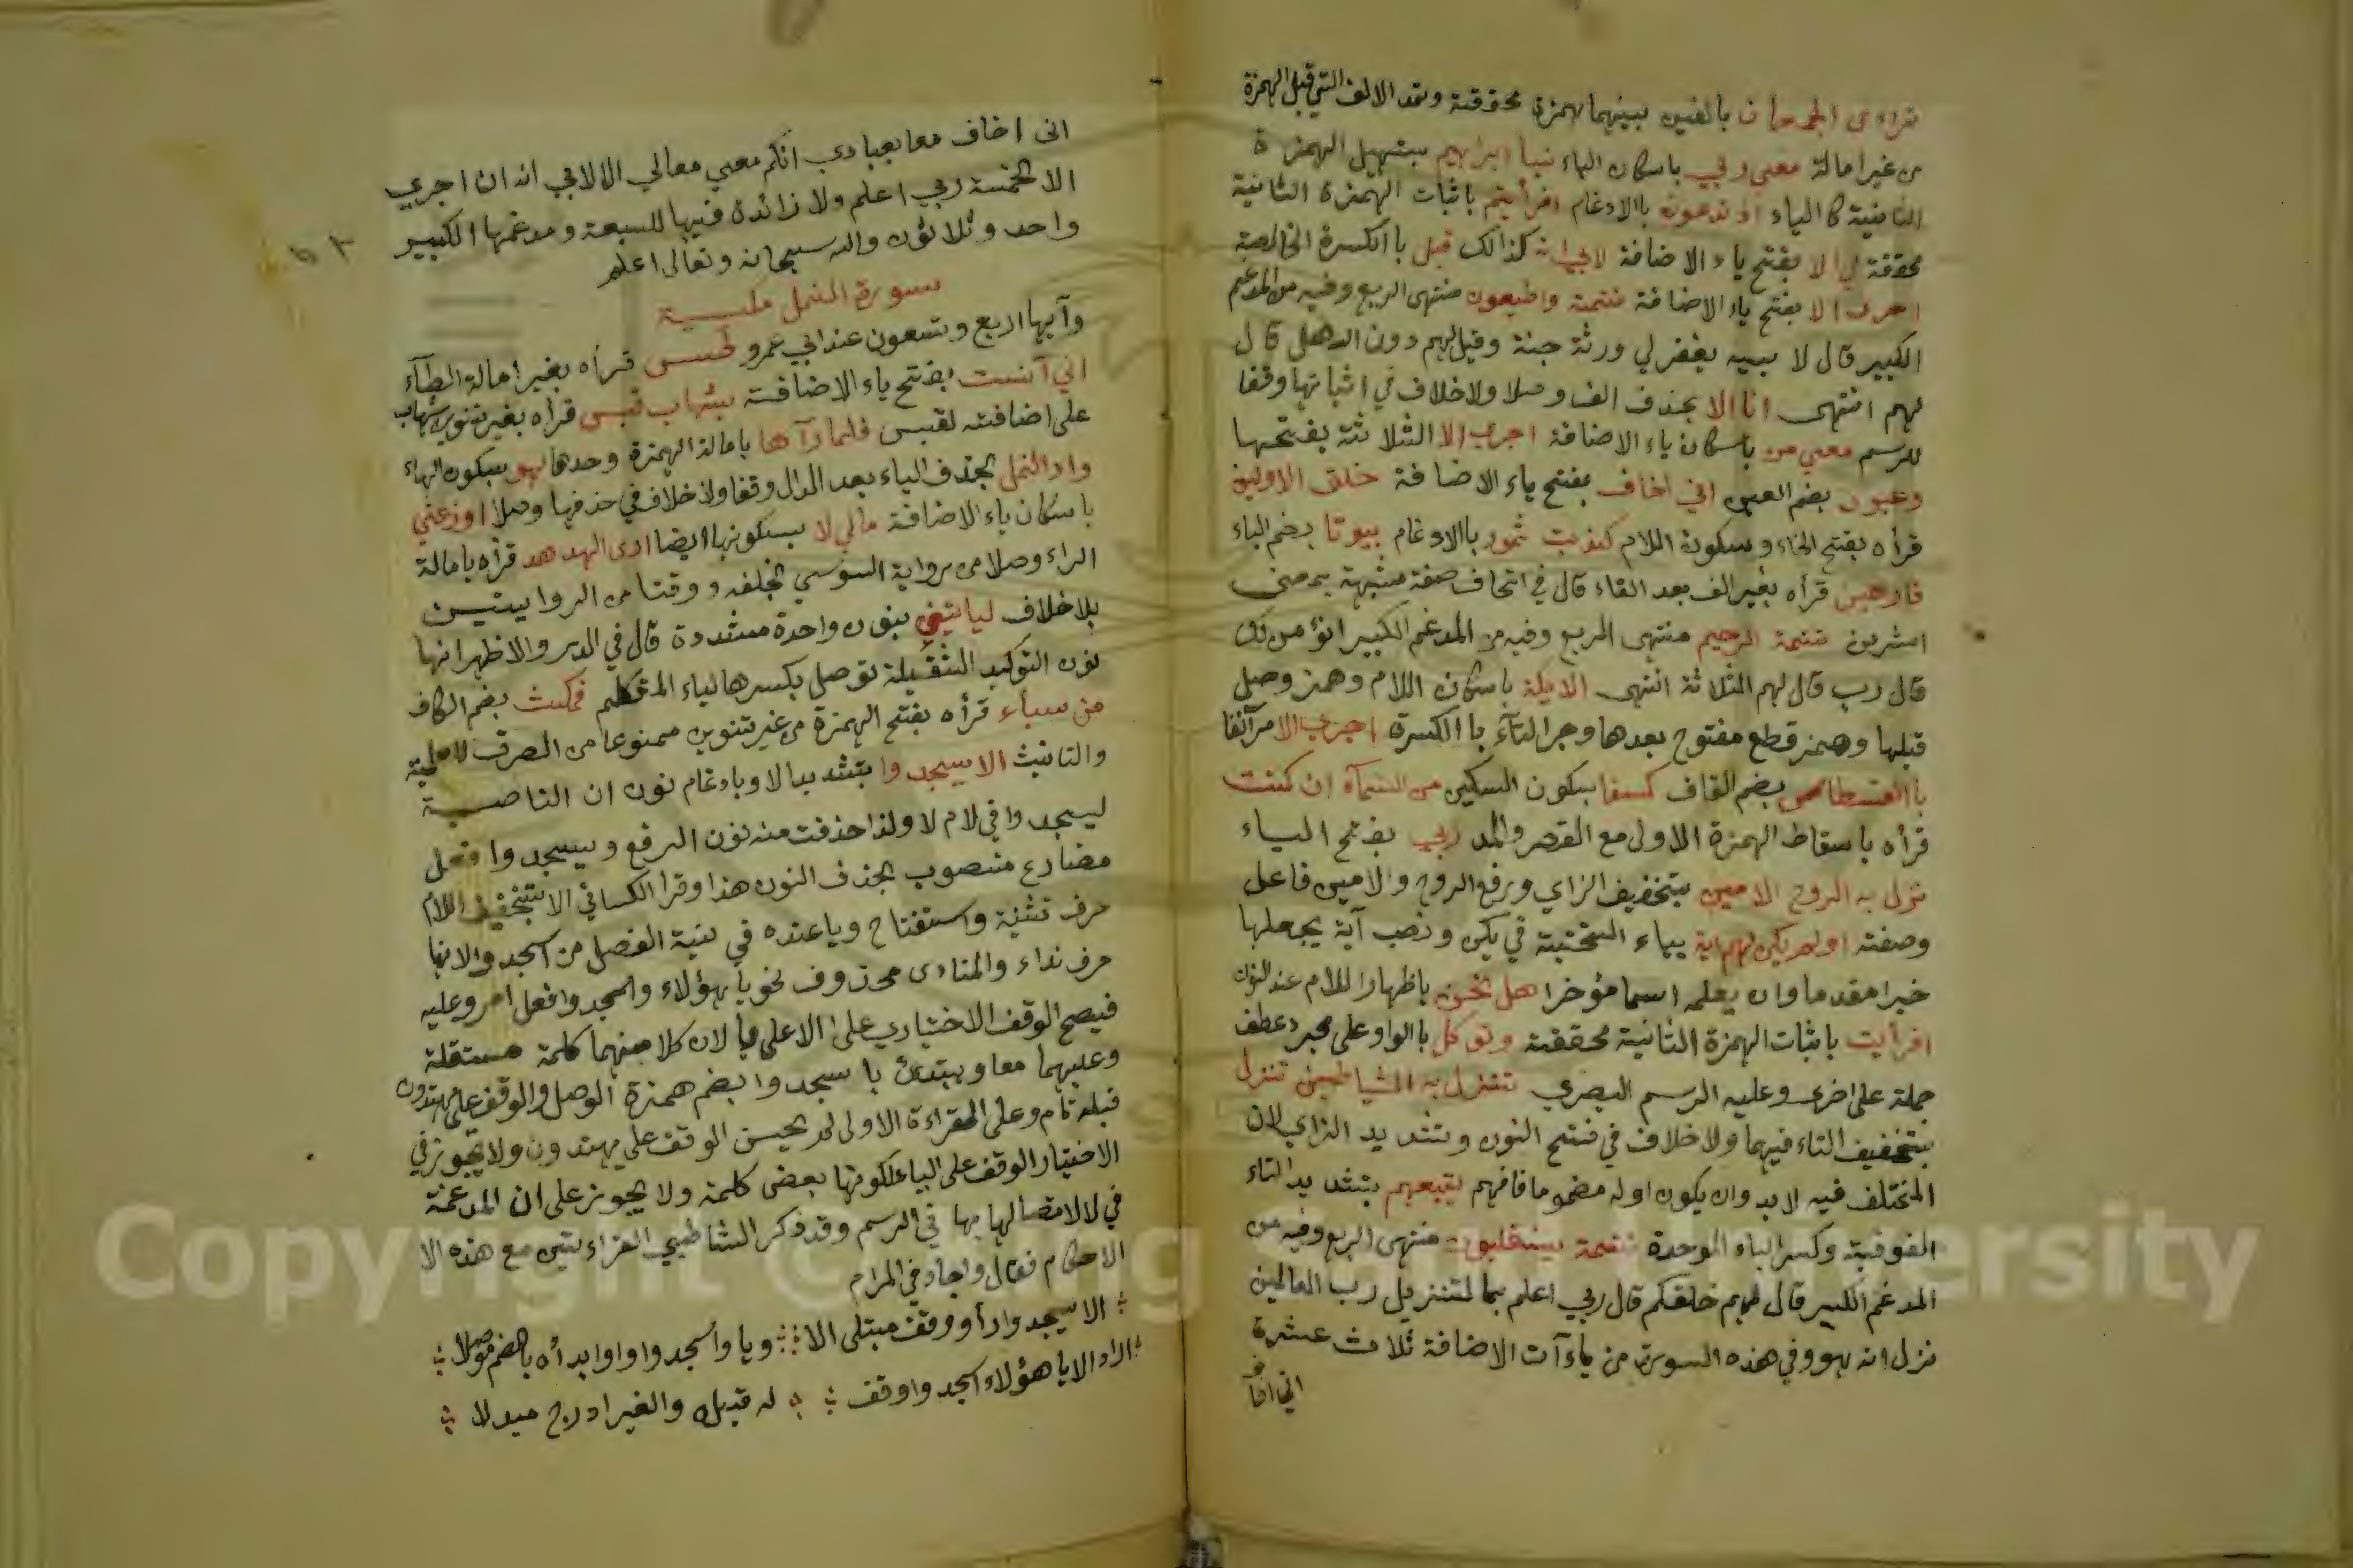 تراءى الجمعان بالفين بينهما همزة محققة وتمد الالف التي قبل الهمزة
من غير امالة معي ربي باسكان الياء نبا ابراهيم بتسهيل الهمزة
الثانية كالياء اذ تدعون بالادغام افرأيتم باثبات الهمزة الثانية
محققة لي الا بفتح ياء الاضافة لابي انه كذالك قيل باالكسرة الخالصة
اجرى الا بفتح ياء الاضافة تتمة واطيعون منتهى الربع وفيه من المدغم
الكبير قال لا بيه يغفر لي ورثة جنة وقيل لهم دون الله هل قال
لهم انتهى انا الا بحذف الف وصلا ولاخلاف في اثباتها وقفا
للرسم معي من باسكان ياء الاضافة اجرى الا الثلاثة بفتحها
وعيون بضم العين اني اخاف بفتح ياء الاضافة خلق الاولين
قرأه بفتح الخاء وسكون اللام كذبت ثمود باالادغام بيوتا بضم الباء
فارهين قرأه بغير الف بعد الفاء قال في اتحاف صفة مشبهة بمعنى
اشرين تتمة الرحيم منتهى الربع وفيه من المدغم الكبير انؤمن لك
قال رب قال لهم الثلاثة انتهى الايكة باسكان اللام وهمز وصل
قبلها وهمز قطع مفتوح بعدها وجر التآء باالكسرة اجرى الا مر آنفا
باالقسطاس بضم القاف كسفا بسكون السكين من السمآء ان كنت
قرأه باسقاط الهمزة الاولى مع القصر والمد ربي بفتح الياء
نزل به الروح الامين بتخفيف الزاي ورفع الروح والامين فاعل
وصفته اولم يكن لهم اية بياء التحتية في يكن ونصب آية يجعلها
خبرا مقدما وان يعلمه اسما مؤخرا هل نحن باظهار اللام عند النون
افرأيت باثبات الهمزة الثانية محققة وتوكل باالواو على مجرد عطف
جملة على اخرى وعليه الرسم البصري تتنزل به الشياطين تنزل
بتخفيف التاء فيهما ولاخلاف في فتح النون وتشديد الزاي لان
المختلف فيه لابد وان يكون اوله مضموما فافهم يتبعهم بتشديد التاء
الفوقية وكسر الباء الموحدة تتمة ينقلبون منتهى الربع وفيه من
المدغم الكبير قال لهم خلقكم قال ربي اعلم بما لتنزيل رب العالمين
نزل انه هو وفي هذه السورة من ياءآت الاضافة ثلاث عشرة
اني اخاف
انى اخاف معا بعبادي انكم معي معا لي الا لابي انه ان اجري
الا الخمسة ربي اعلم ولا زائدة فيها للسبعة ومدغمها الكبير
واحد وثلاثون والله سبحانه وتعالى اعلم
سورة النمل مكية
وآيها اربع وتسعون عند ابي عمرو طس قرأه بغير امالة الطآء
اني آنست بفتح ياء الاضافة بشهاب قبس قرأه بغير تنوين شهاب
على اضافته لقبس فلما رآها بامالة الهمزة وحدها لهو بسكون الهاء
واد النمل بحذف الياء بعد الدال وقفا ولاخلاف في حذفها وصلا اوزعني
باسكان ياء الاضافة مالي لا بسكونها ايضا ارى الهدهد قرأه بامالة
الراء وصلا من رواية السوسي بخلفه ووقفا من الروايتين
بلاخلاف لياتيني بنون واحدة مشددة قال في الدر والاظهر انها
نون التوكيد الثقيلة توصل بكسرها لياء المتكلم فمكث بضم الكاف
من سبأ قرأه بفتح الهمزة من غير تنوين ممنوعا من الصرف للعلمية
والتانيث الا يسجدوا بتشديد الا وبادغام نون ان الناصبة
ليسجدوا في لام لا ولذا حذفت منه نون الرفع ويسجدوا فعل
مضارع منصوب بحذف النون هذا وقرا الكسائي الا بتخفيف اللام
حرف تنبيه واستفتاح ويا عنده في نية الفصل من اسجدوا لانها
حرف نداء والمنادى محذوف نحو يا هؤلاء واسجدوا فعل امر وعليه
فيصح الوقف الاختياري على الا على يا لان كلا منهما كلمة مستقلة
وعليهما معا ويبتدئ باسجدوا بضم همزة الوصل والوقف على يهتدون
قبله تام وعلى القراءة الاولى لم يحسن الوقف على يهتدون ولا يجوز في
الاختيار الوقف على الياء لكونها بعض كلمة ولا يجوز على ان المدغمة
في لا لاتصالها بها في الرسم وقد ذكر الشاطبي القراءتين مع هذه الا
الاحكام فقال واجاد في المرام
الا يسجدوا راو وقف مبتلى الا ويا واسجدوا وابدأه بالضم موصلا
اراد الا يا هؤلاء اسجدوا وقف له قبله والغير ادرج مبدلا
Copyright © King Saud University